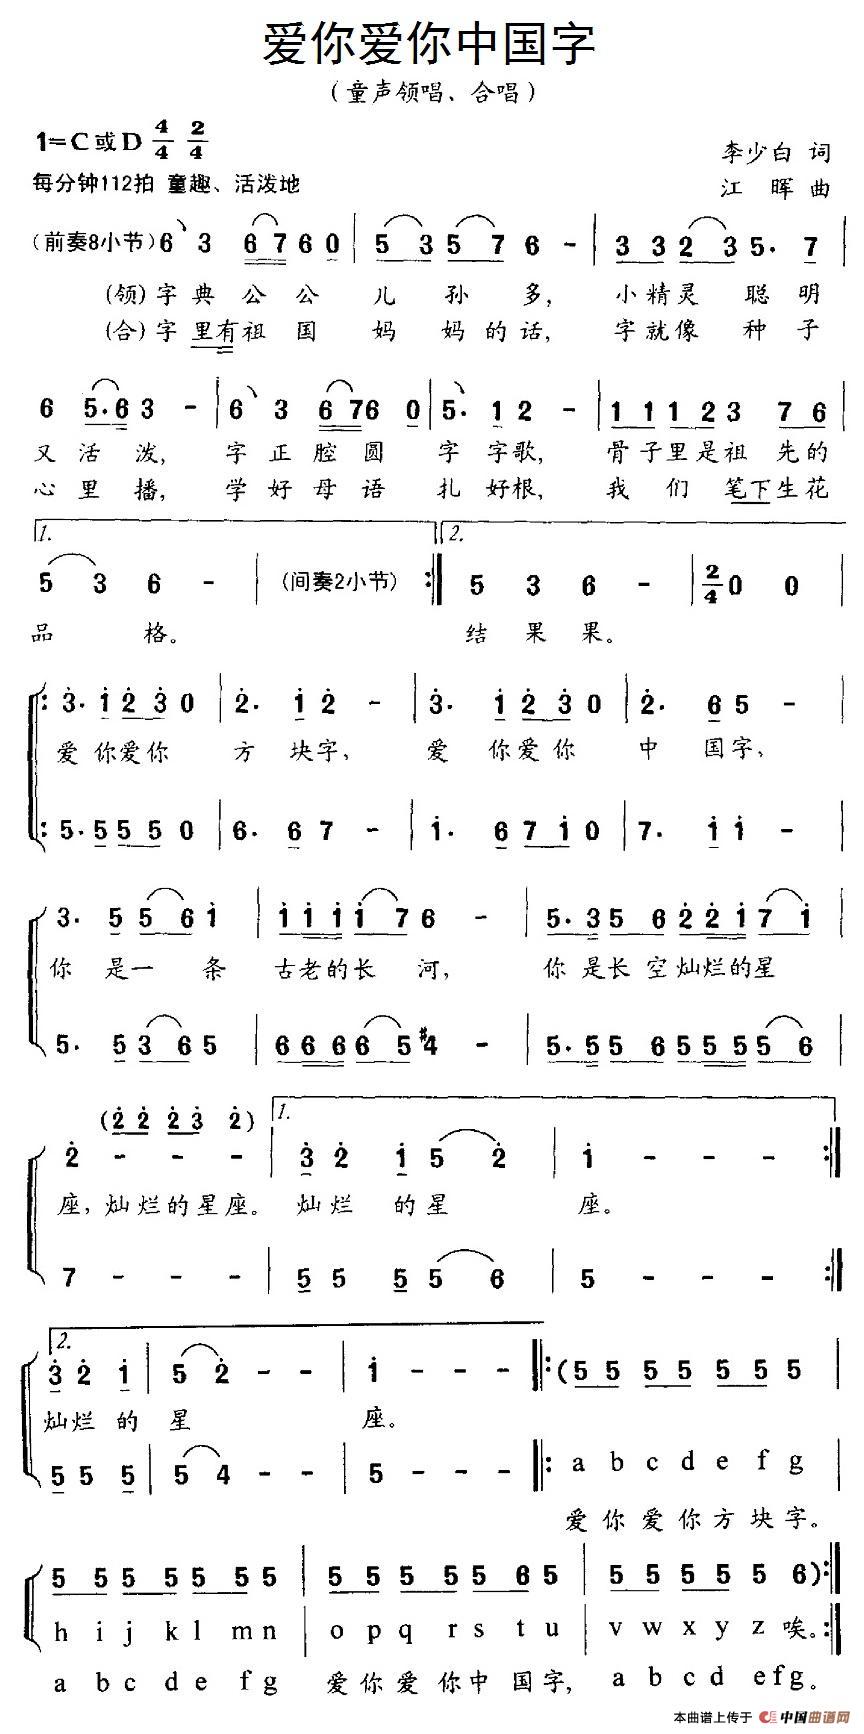 爱你爱你中国字
（童声领唱、合唱）
1=C或D 4/4 2/4
李少白 词
每分钟112拍 童趣、活泼地
江 晖 曲
（前奏8小节）6 3 6 7 6 0 | 5 3 5 7 6 - | 3 3 2 3 5. 7
(领)字典公公儿孙多，小精灵聪明
(合)字里有祖国妈妈的话，字就像种子
6 5. 6 3 - | 6 3 6 7 6 0 | 5. 1 2 - | 1 1 1 2 3 7 6
又活泼，字正腔圆字字歌，骨子里是祖先的
心里播，学好母语扎好根，我们笔下生花
1. 2.
5 3 6 - | （间奏2小节） :| 5 3 6 - | 2/4 0 0
品格。结果果。
|: 3. 1 2 3 0 | 2. 1 2 - | 3. 1 2 3 0 | 2. 6 5 -
爱你爱你方块字，爱你爱你中国字，
|: 5. 5 5 5 0 | 6. 6 7 - | 1. 6 7 1 0 | 7. 1 1 -
3. 5 5 6 1 | 1 1 1 1 7 6 - | 5. 3 5 6 2 2 1 7 1
你是一条古老的长河，你是长空灿烂的星
5. 5 3 6 5 | 6 6 6 6 5 #4 - | 5. 5 5 6 5 5 5 5 6
(2 2 2 3 2) 1.
2 - - - | 3 2 1 5 2 | 1 - - - :|
座，灿烂的星座。灿烂的星座。
7 - - - | 5 5 5 5 6 | 5 - - - :|
2.
3 2 1 | 5 2 - - | 1 - - - |: (5 5 5 5 5 5 5
灿烂的星座。
5 5 5 | 5 4 - - | 5 - - - |: a b c d e f g
爱你爱你方块字。
5 5 5 5 5 5 5 | 5 5 5 5 5 6 5 | 5 5 5 5 5 6) :|
h i j k l m n | o p q r s t u | v w x y z 唉。 :|
a b c d e f g 爱你爱你中国字， a b c d e f g。
本曲谱上传于 中国曲谱网